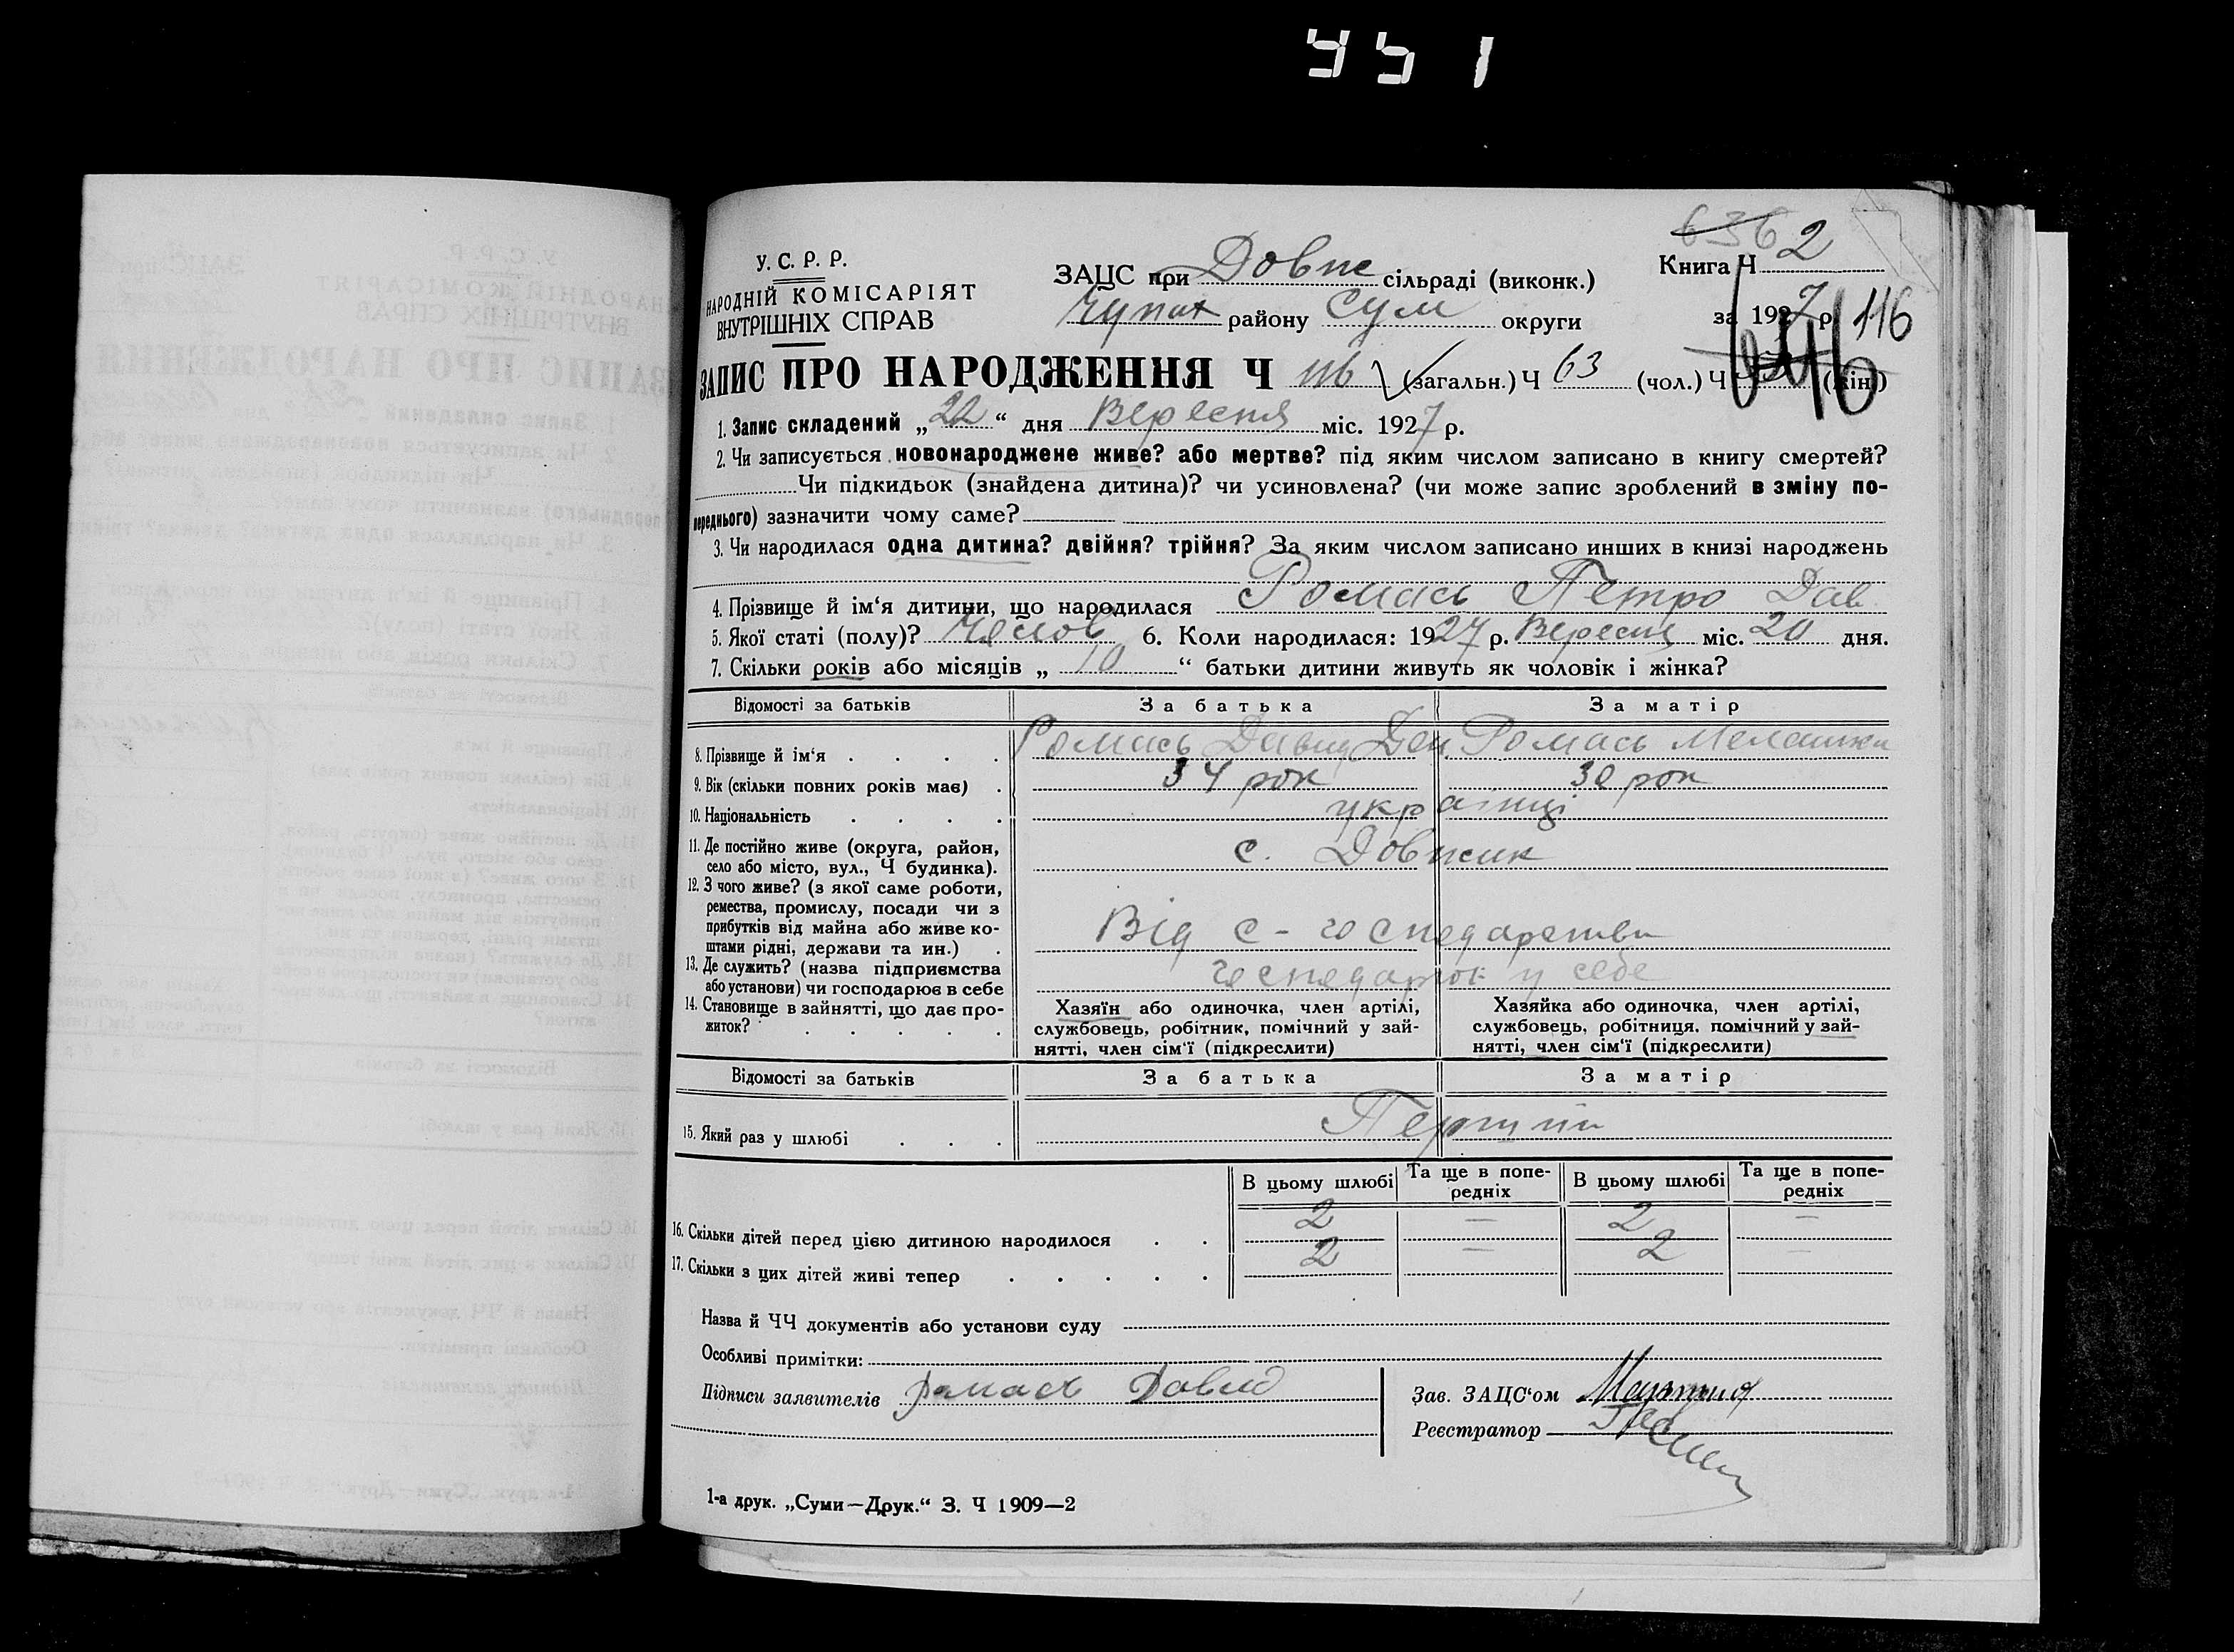 951
6362
У. С. Р. Р.
НАРОДНІЙ КОМІСАРІЯТ
ВНУТРІШНІХ СПРАВ
ЗАЦС при Довж сільраді (виконк.)
Чупах району Сум округи
Книга Ч 2
за 1927 р. 116
ЗАПИС ПРО НАРОДЖЕННЯ Ч 116 (загальн.) Ч 63 (чол.) Ч (жін.)
646
1. Запис складений „22“ дня Вересня міс. 1927 р.
2. Чи записується новонароджене живе? або мертве? під яким числом записано в книгу смертей?
Чи підкидьок (знайдена дитина)? чи усиновлена? (чи може запис зроблений в зміну по-
переднього) зазначити чому саме?
3. Чи народилася одна дитина? двійня? трійня? За яким числом записано инших в книзі народжень
4. Прізвище й ім‘я дитини, що народилася Ромась Петро Дав
5. Якої статі (полу)? Чолов 6. Коли народилася: 1927 р. Вересня міс. 20 дня.
7. Скільки років або місяців „ 10 “ батьки дитини живуть як чоловік і жінка?
Відомості за батьків За батька За матір
8. Прізвище й ім‘я . . . . Ромась Давид Дем Ромась Мелашка
9. Вік (скільки повних років має) . 34 рок 30 рок
10. Національність . . . . українці
11. Де постійно живе (округа, район,
село або місто, вул., Ч будинка). с. Довжик
12. З чого живе? (з якої саме роботи,
ремества, промислу, посади чи з
прибутків від майна або живе ко-
штами рідні, держави та ин.) . Від с-господарства
13. Де служить? (назва підприємства
або установи) чи господарює в себе господарює у себе
14. Становище в зайнятті, що дає про-
житок? . . . . .
Хазяїн або одиночка, член артілі,
службовець, робітник, помічний у зай-
нятті, член сім‘ї (підкреслити)
Хазяйка або одиночка, член артілі,
службовець, робітниця, помічний у зай-
нятті, член сім‘ї (підкреслити)
Відомості за батьків За батька За матір
15. Який раз у шлюбі . . . Перший
В цьому шлюбі Та ще в попе-
редніх В цьому шлюбі Та ще в попе-
редніх
16. Скільки дітей перед цією дитиною народилося . . 2 — 2 —
17. Скільки з цих дітей живі тепер . . . . . 2 — 2 —
Назва й ЧЧ документів або установи суду
Особливі примітки:
Підписи заявителів Ромась Давид
Зав. ЗАЦС‘ом
Реєстратор
1-а друк. „Суми—Друк.“ З. Ч 1909—2